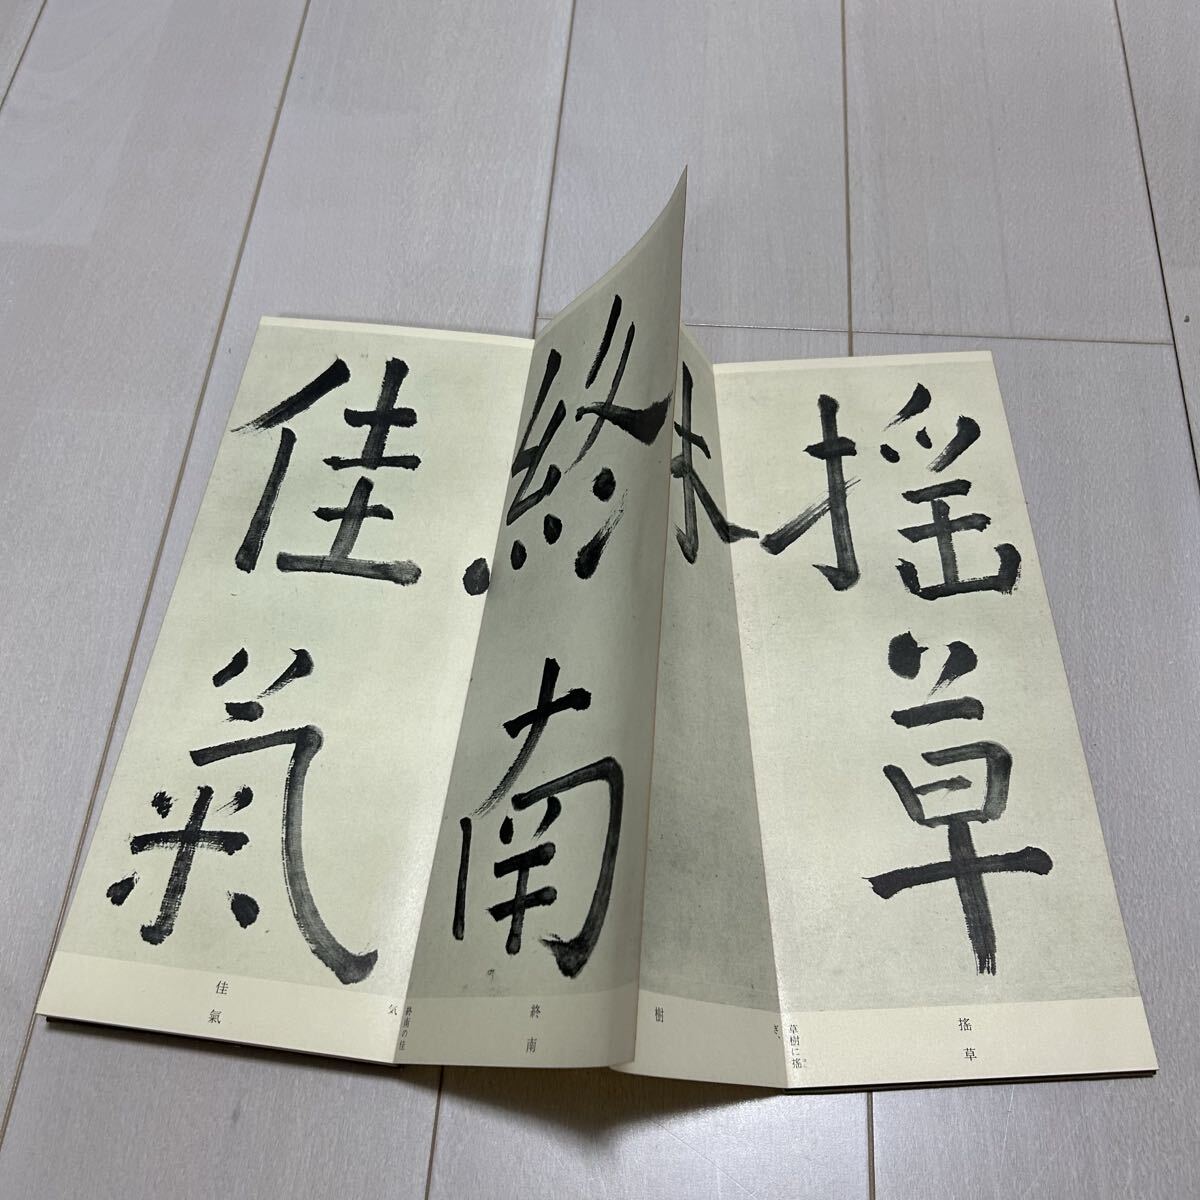 搖草
終南
佳氣
搖草
草樹に搖
ぎ、
樹
終南
終南の佳
気
佳氣